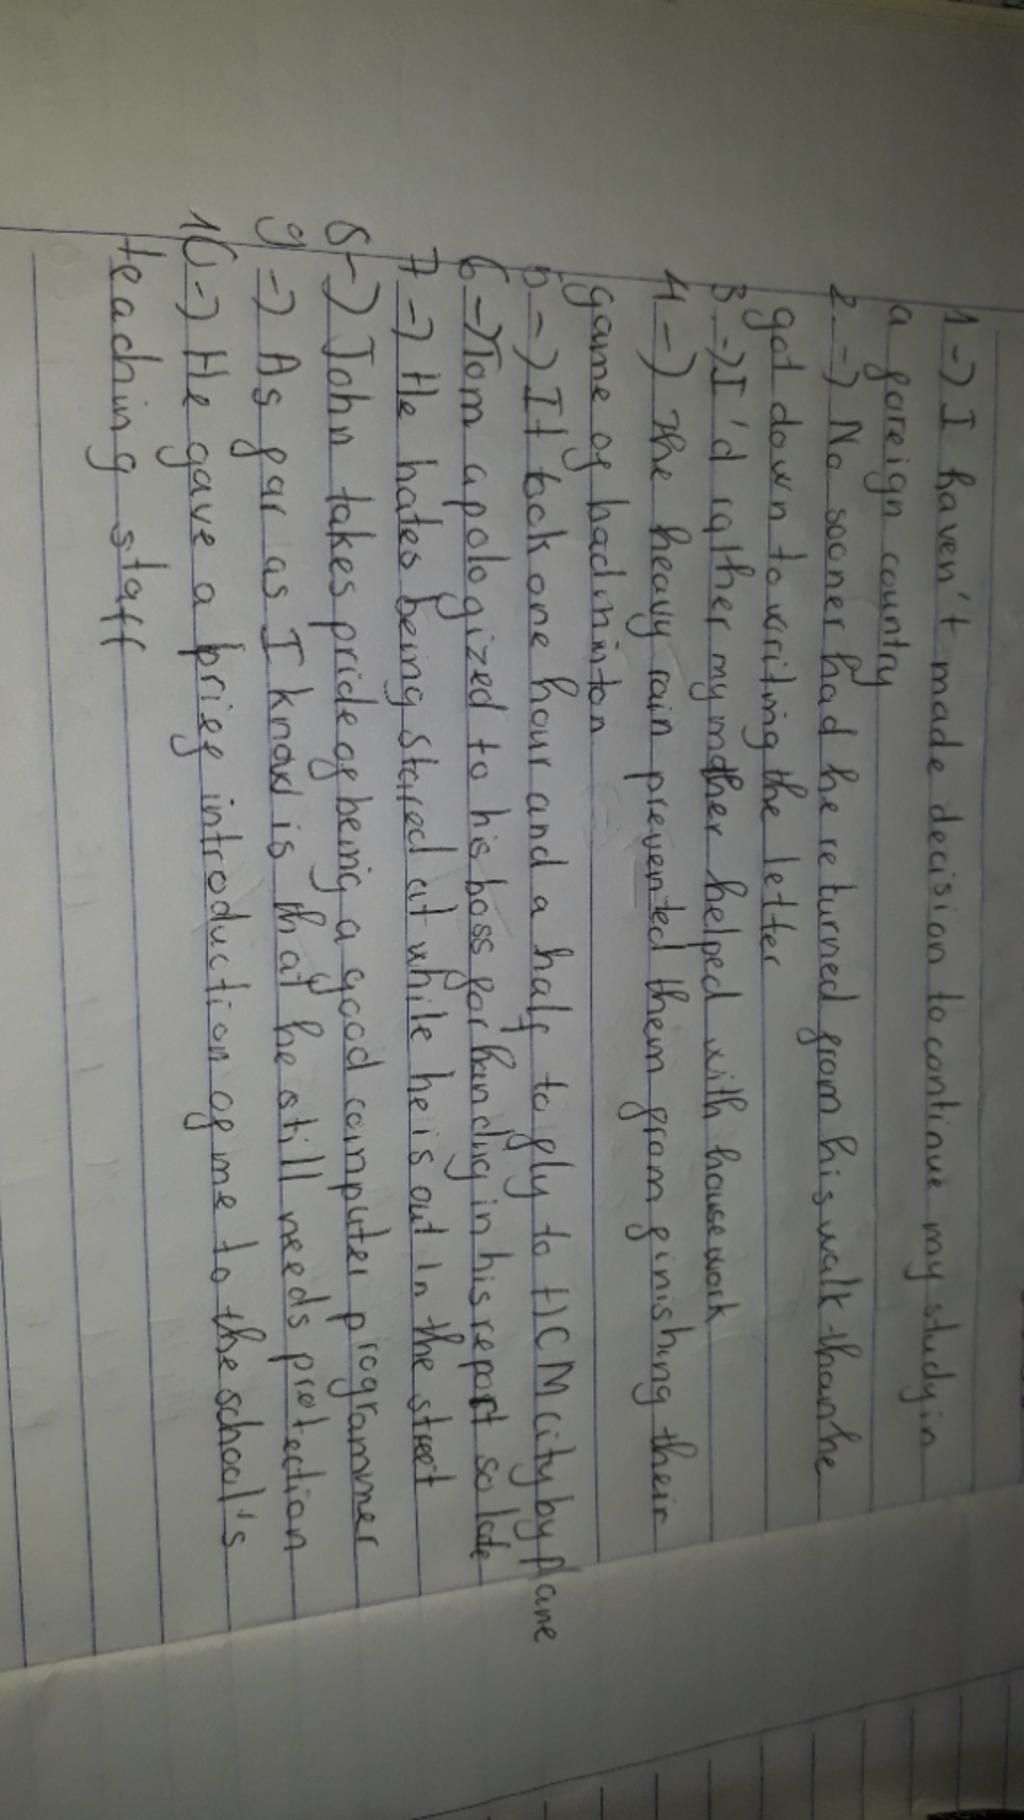 1 -) I haven't made decision to continue my study in
a foreign county
2 -) No sooner had he returned from his walk than he
got down to writing the letter
3 -) I'd rather my mother helped with house work
4 -) The heavy rain prevented them from finishing their
game of badminton
5 -) It took one hour and a half to fly to HCM city by plane
6 -) Tom apologized to his boss for handing in his report so late
7 -) He hates being stared at while he is out in the street
8 -) John takes pride of being a good computer programmer
9 -) As far as I know is that he still needs protection
10 -) He gave a brief introduction of me to the school's
teaching staff